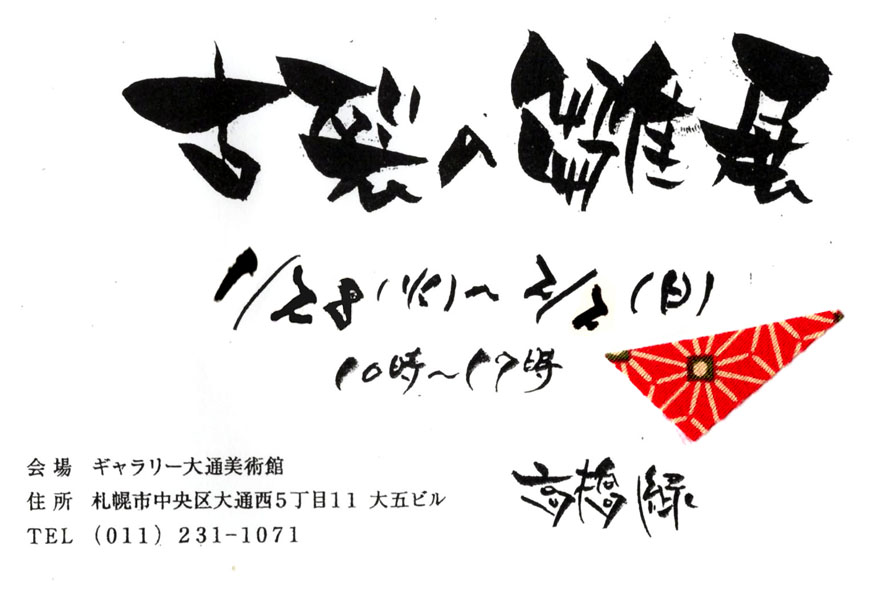 古裂の雛展
1/28(火)〜2/2(日)
10時〜17時
会場 ギャラリー大通美術館
住所 札幌市中央区大通西5丁目11 大五ビル
TEL (011) 231-1071
高橋 緑